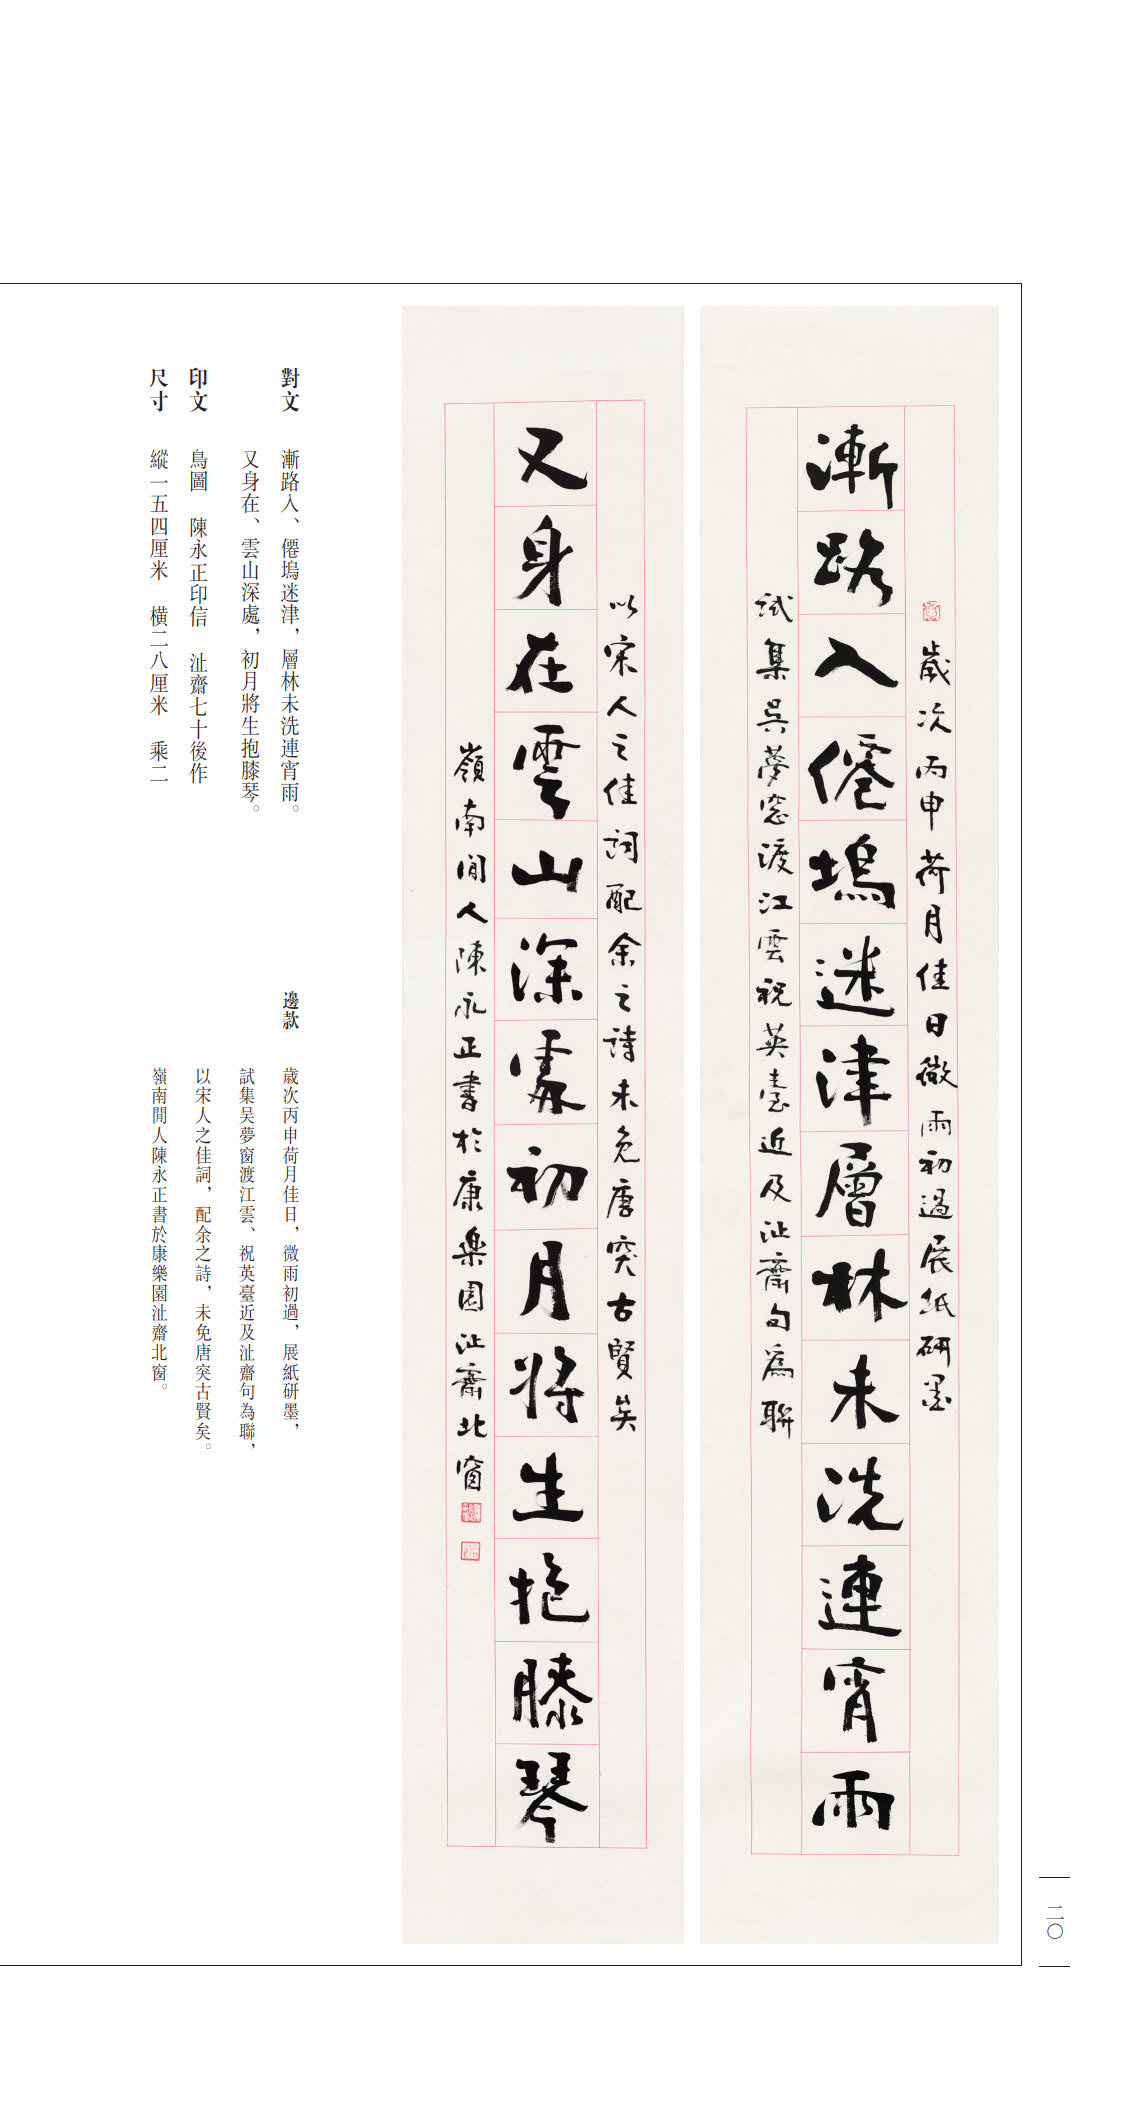 歲次丙申荷月佳日微雨初過展紙研墨
漸路入僊塢迷津層林未洗連宵雨
試集吳夢窓渡江雲祝英臺近及沚齋句為聯
以宋人之佳詞配余之詩未免唐突古賢矣
又身在雲山深處初月將生抱膝琴
嶺南閒人陳永正書於康樂園沚齋北窗
對文 漸路入、僊塢迷津，層林未洗連宵雨。
又身在、雲山深處，初月將生抱膝琴。
印文 鳥圖 陳永正印信 沚齋七十後作
尺寸 縱一五四厘米 橫二八厘米 乘二
邊款 歲次丙申荷月佳日，微雨初過，展紙研墨，
試集吴夢窗渡江雲、祝英臺近及沚齋句為聯，
以宋人之佳詞，配余之詩，未免唐突古賢矣。
嶺南閒人陳永正書於康樂園沚齋北窗。
二〇